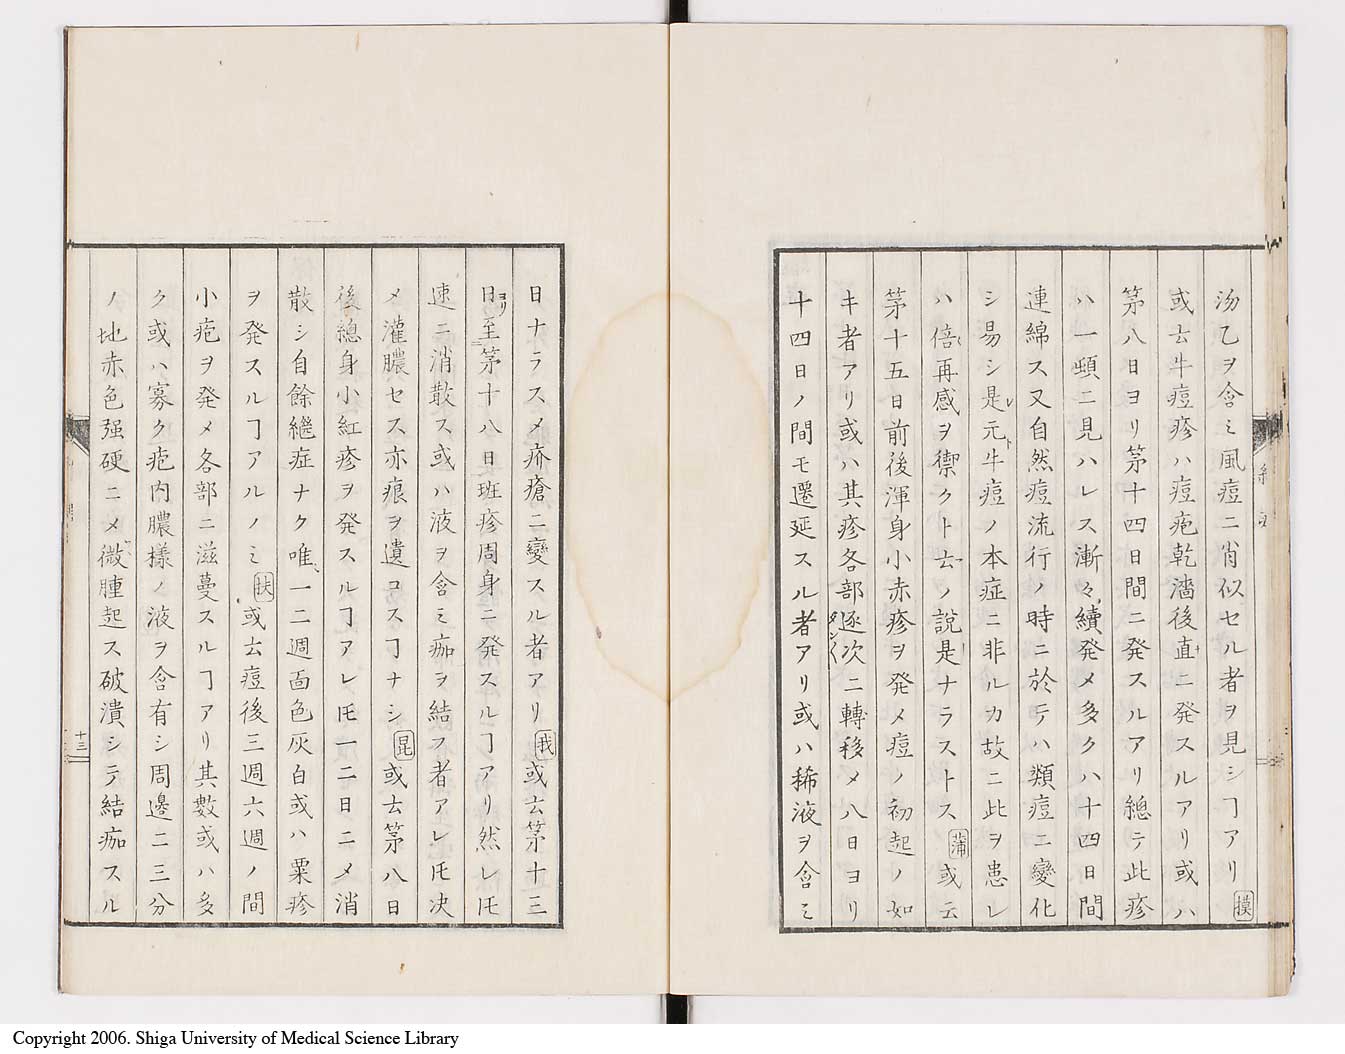 汤乙ヲ含ミ風痘ニ肖似セル者ヲ見シヿアリ摸
或云牛痘疹ハ痘疱乾濇後直ニ発スルアリ或ハ
苐八日ヨリ苐十四日間ニ発スルアリ緫テ此疹
ハ一頓ニ見ハレス漸々續発メ多クハ十四日間
連綿ス又自然痘流行ノ時ニ於テハ類痘ニ變化
シ易シ是レ元ト牛痘ノ本症ニ非ルカ故ニ此ヲ患レ
ハ倍再感ヲ禦クト云ノ說是ナラストス蒲或云
苐十五日前後渾身小赤疹ヲ発メ痘ノ初起ノ如
キ者アリ或ハ其疹各部逐次ニ轉移メ八日ヨリ
十四日ノ間モ遷延スル者アリ或ハ稀液ヲ含ミ
日ナラスメ疥瘡ニ變スル者アリ我或云苐十三
日ヨリ至苐十八日班疹周身ニ発スルヿアリ然レ𪜈
速ニ消散ス或ハ液ヲ含ミ痂ヲ結フ者アレ𪜈决
メ灌膿セス亦痕ヲ遺コスヿナシ昆或云苐八日
後緫身小紅疹ヲ発スルヿアレ𪜈一二日ニメ消
散シ自餘継症ナク唯一二週面色灰白或ハ粟疹
ヲ発スルヿアルノミ扶或云痘後三週六週ノ間
小疱ヲ発メ各部ニ滋蔓スルヿアリ其數或ハ多
ク或ハ寡ク疱内膿樣ノ液ヲ含有シ周邊二三分
ノ地赤色强硬ニメ微腫起ス破潰シテ結痂スル
十三
Copyright 2006. Shiga University of Medical Science Library